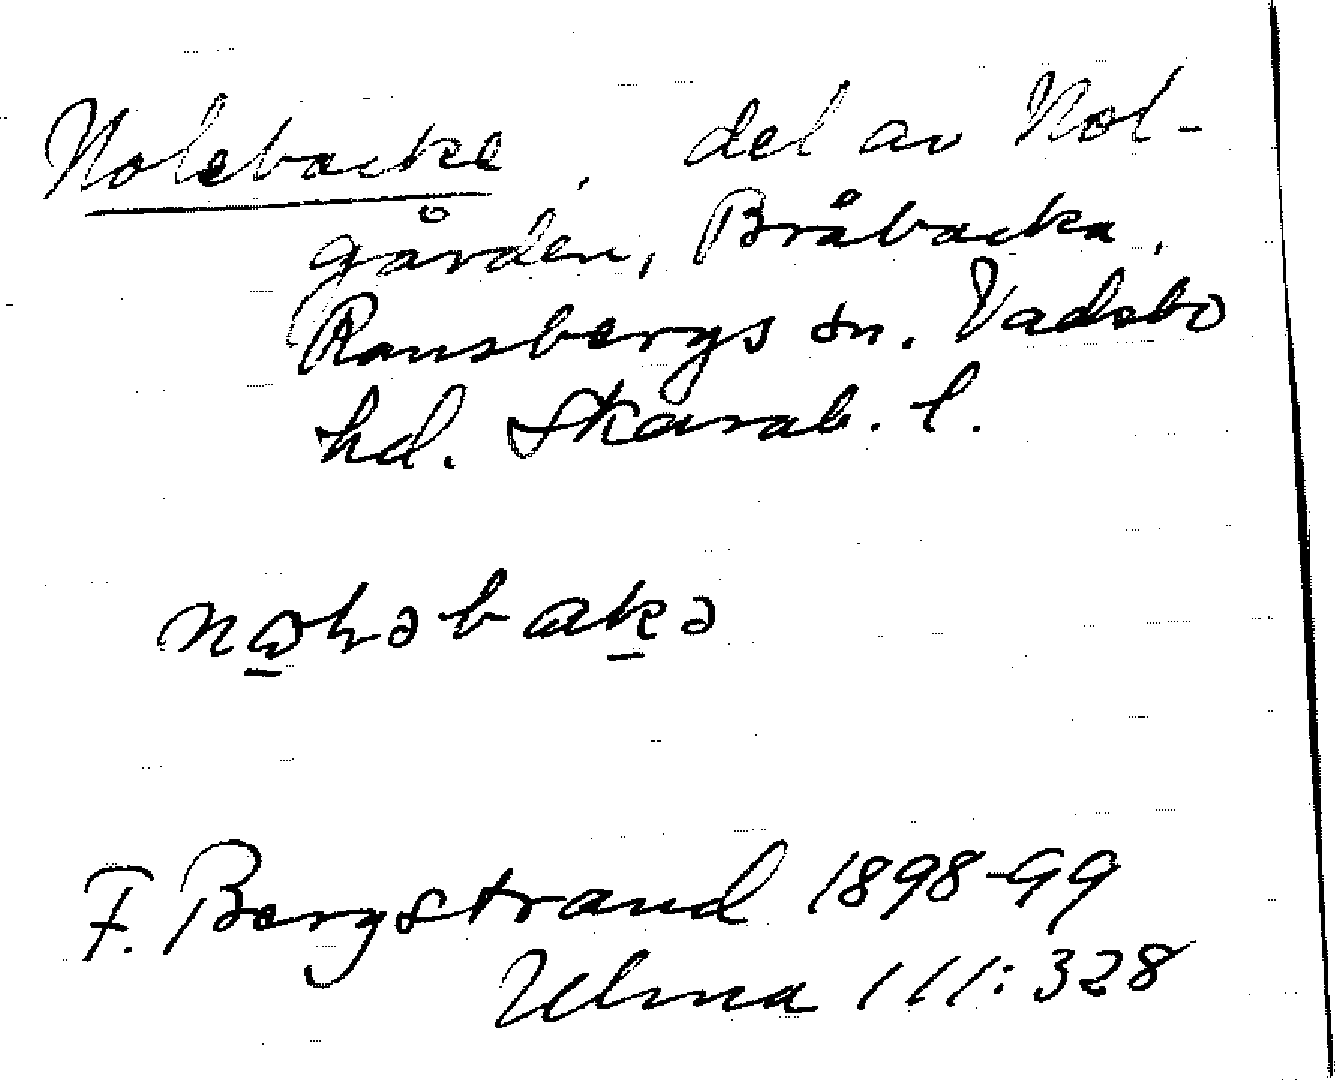 Nolebacke, del av Nol-
gården, Bråbacka,
Ransbergs sn. Vadsbo
hd. Skarab. l.
F. Bergstrand 1898-99
Ulma 111:328